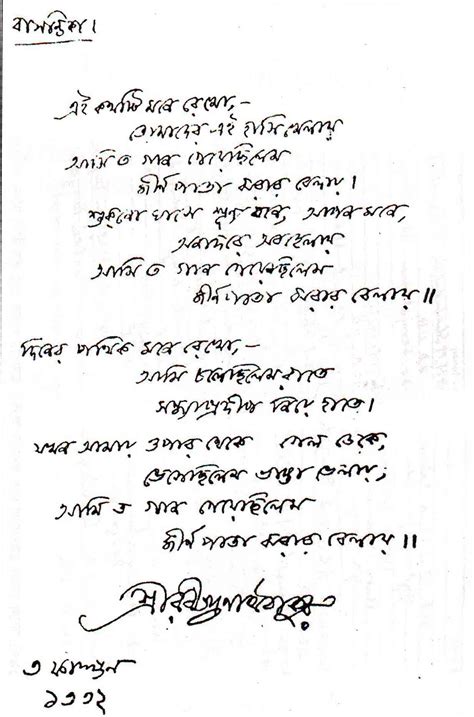 বাসন্তিকা।
এই কথাটি মনে রেখো,–
তোমাদের এই হাসি খেলায়
আমি ত গান গেয়েছিলেম
জীর্ণ পাতা ঝরার বেলায়।
শুকনো ঘাসে শূন্য বনে, আপন মনে,
অনাদরে অবহেলায়
আমি ত গান গেয়েছিলেম
জীর্ণ পাতা ঝরার বেলায়॥
দিনের পথিক মনে রেখো,–
আমি চলেছিলেম রাতে
সন্ধ্যাপ্রদীপ নিয়ে হাতে।
যখন আমায় ওপার থেকে গেল ডেকে,
ভেসেছিলেম ভাঙা ভেলায়;
আমি ত গান গেয়েছিলেম
জীর্ণ পাতা ঝরার বেলায়॥
শ্রীরবীন্দ্রনাথ ঠাকুর
৩ ফাল্গুন
১৩৩২